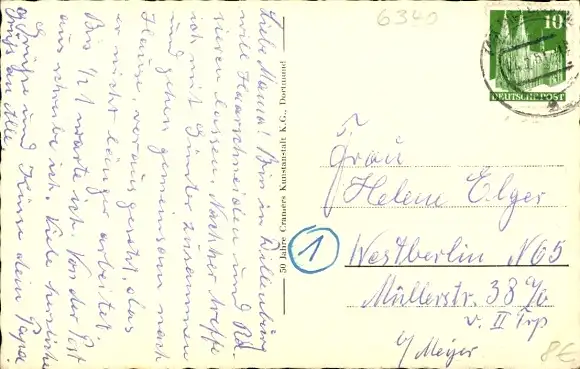 Liebe Mama! Bin in Dillenburg
will Haarschneiden und Ra-
sieren lassen. Nachher treffe
ich mit Günter zusammen
und gehen gemeinsam nach
Hause, vorausgesetzt, das
er nicht länger arbeitet.
Bis 1/21 warte ich. Von der Post
aus schreibe ich. Viele herzliche
Grüße und Küsse dein Papa
Gruß an Alle
50 Jahre Cramers Kunstanstalt K.G., Dortmund
6340
10
DEUTSCHE POST
Frau
Helene Elger
1
Westberlin N 65
Müllerstr. 38 c/o
v. II Trp
b/ Meyer
8€